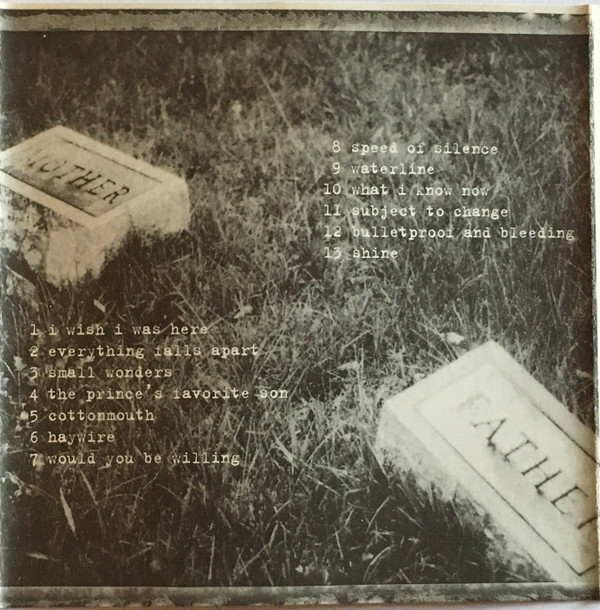 MOTHER
8 speed of silence
9 waterline
10 what i know now
11 subject to change
12 bulletproof and bleeding
13 shine
1 i wish i was here
2 everything falls apart
3 small wonders
4 the prince's favorite son
5 cottonmouth
6 haywire
7 would you be willing
FATHER